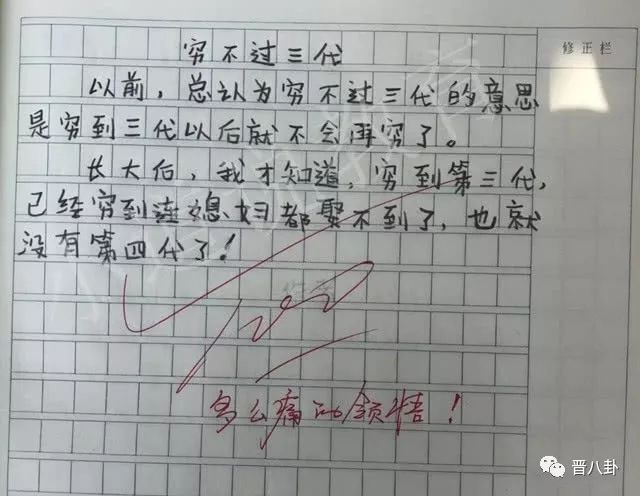 穷不过三代
修正栏
以前，总认为穷不过三代的意思
是穷到三代以后就不会再穷了。
长大后，我才知道，穷到第三代，
已经穷到连媳妇都聚不到了，也就
没有第四代了！
100
多么痛的领悟！
晋八卦